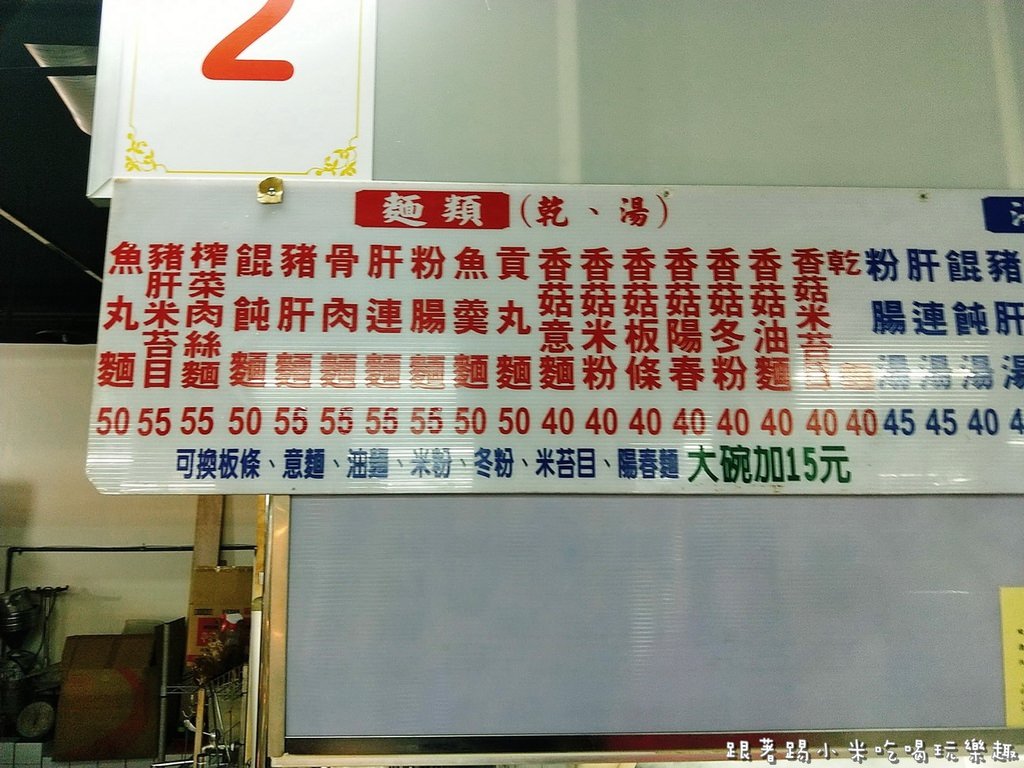 2
麵類(乾、湯)
魚丸麵 50
豬肝米苔目 55
榨菜肉絲麵 55
餛飩麵 50
豬肝麵 55
骨肉麵 55
肝連麵 55
粉腸麵 55
魚羹麵 50
貢丸麵 50
香菇意麵 40
香菇米粉 40
香菇板條 40
香菇陽春 40
香菇冬粉 40
香菇油麵 40
香菇米苔目 40
乾麵 40
粉腸湯 45
肝連湯 45
餛飩湯 40
豬肝湯
可換板條、意麵、油麵、米粉、冬粉、米苔目、陽春麵 大碗加15元
跟著踢小米吃喝玩樂趣